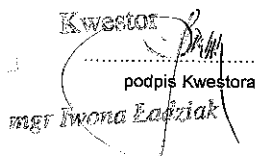 Kwestor
podpis Kwestora
mgr Iwona Ładziak